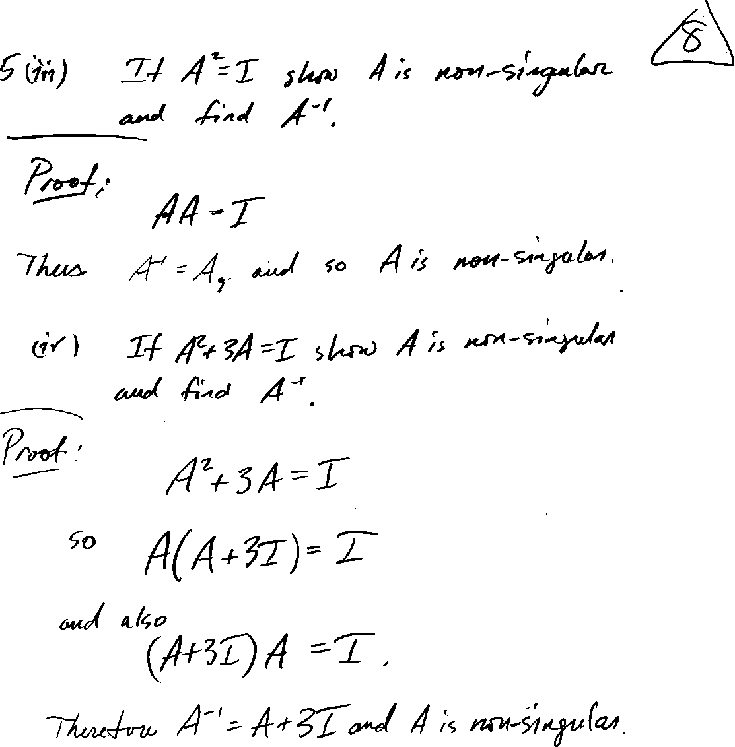 8
5 (iii) If A²=I show A is non-singular
and find A⁻¹.
Proof:
AA = I
Thus A⁻¹ = A, and so A is non-singular.
(iv) If A²+3A=I show A is non-singular
and find A⁻¹.
Proof:
A²+3A=I
so A(A+3I)=I
and also
(A+3I)A = I.
Therefore A⁻¹=A+3I and A is non-singular.